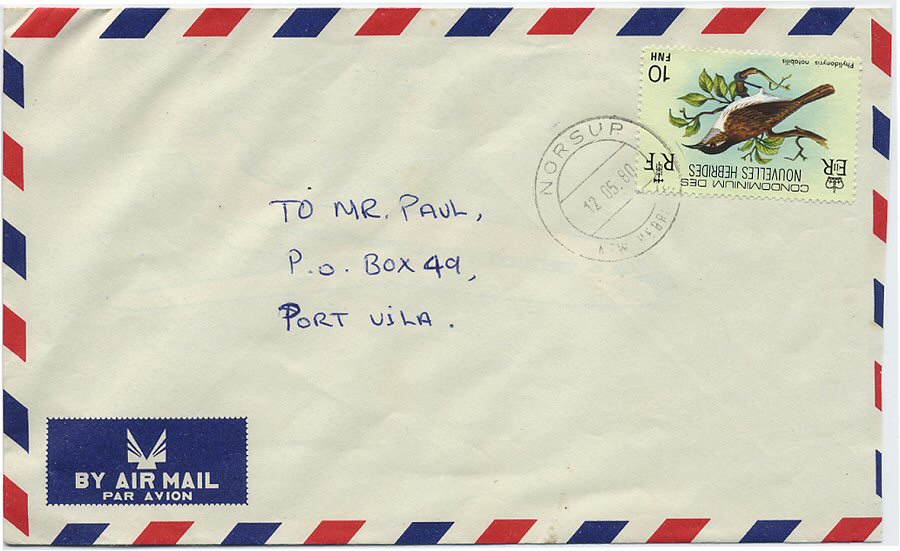 TO MR. PAUL,
P.O. BOX 49,
PORT VILA.
NORSUP
12 05.80
NEW HEBRI
10
FNH
Phylidonyris notabilis
RF
EIIR
CONDOMINIUM DES
NOUVELLES HEBRIDES
BY AIR MAIL
PAR AVION